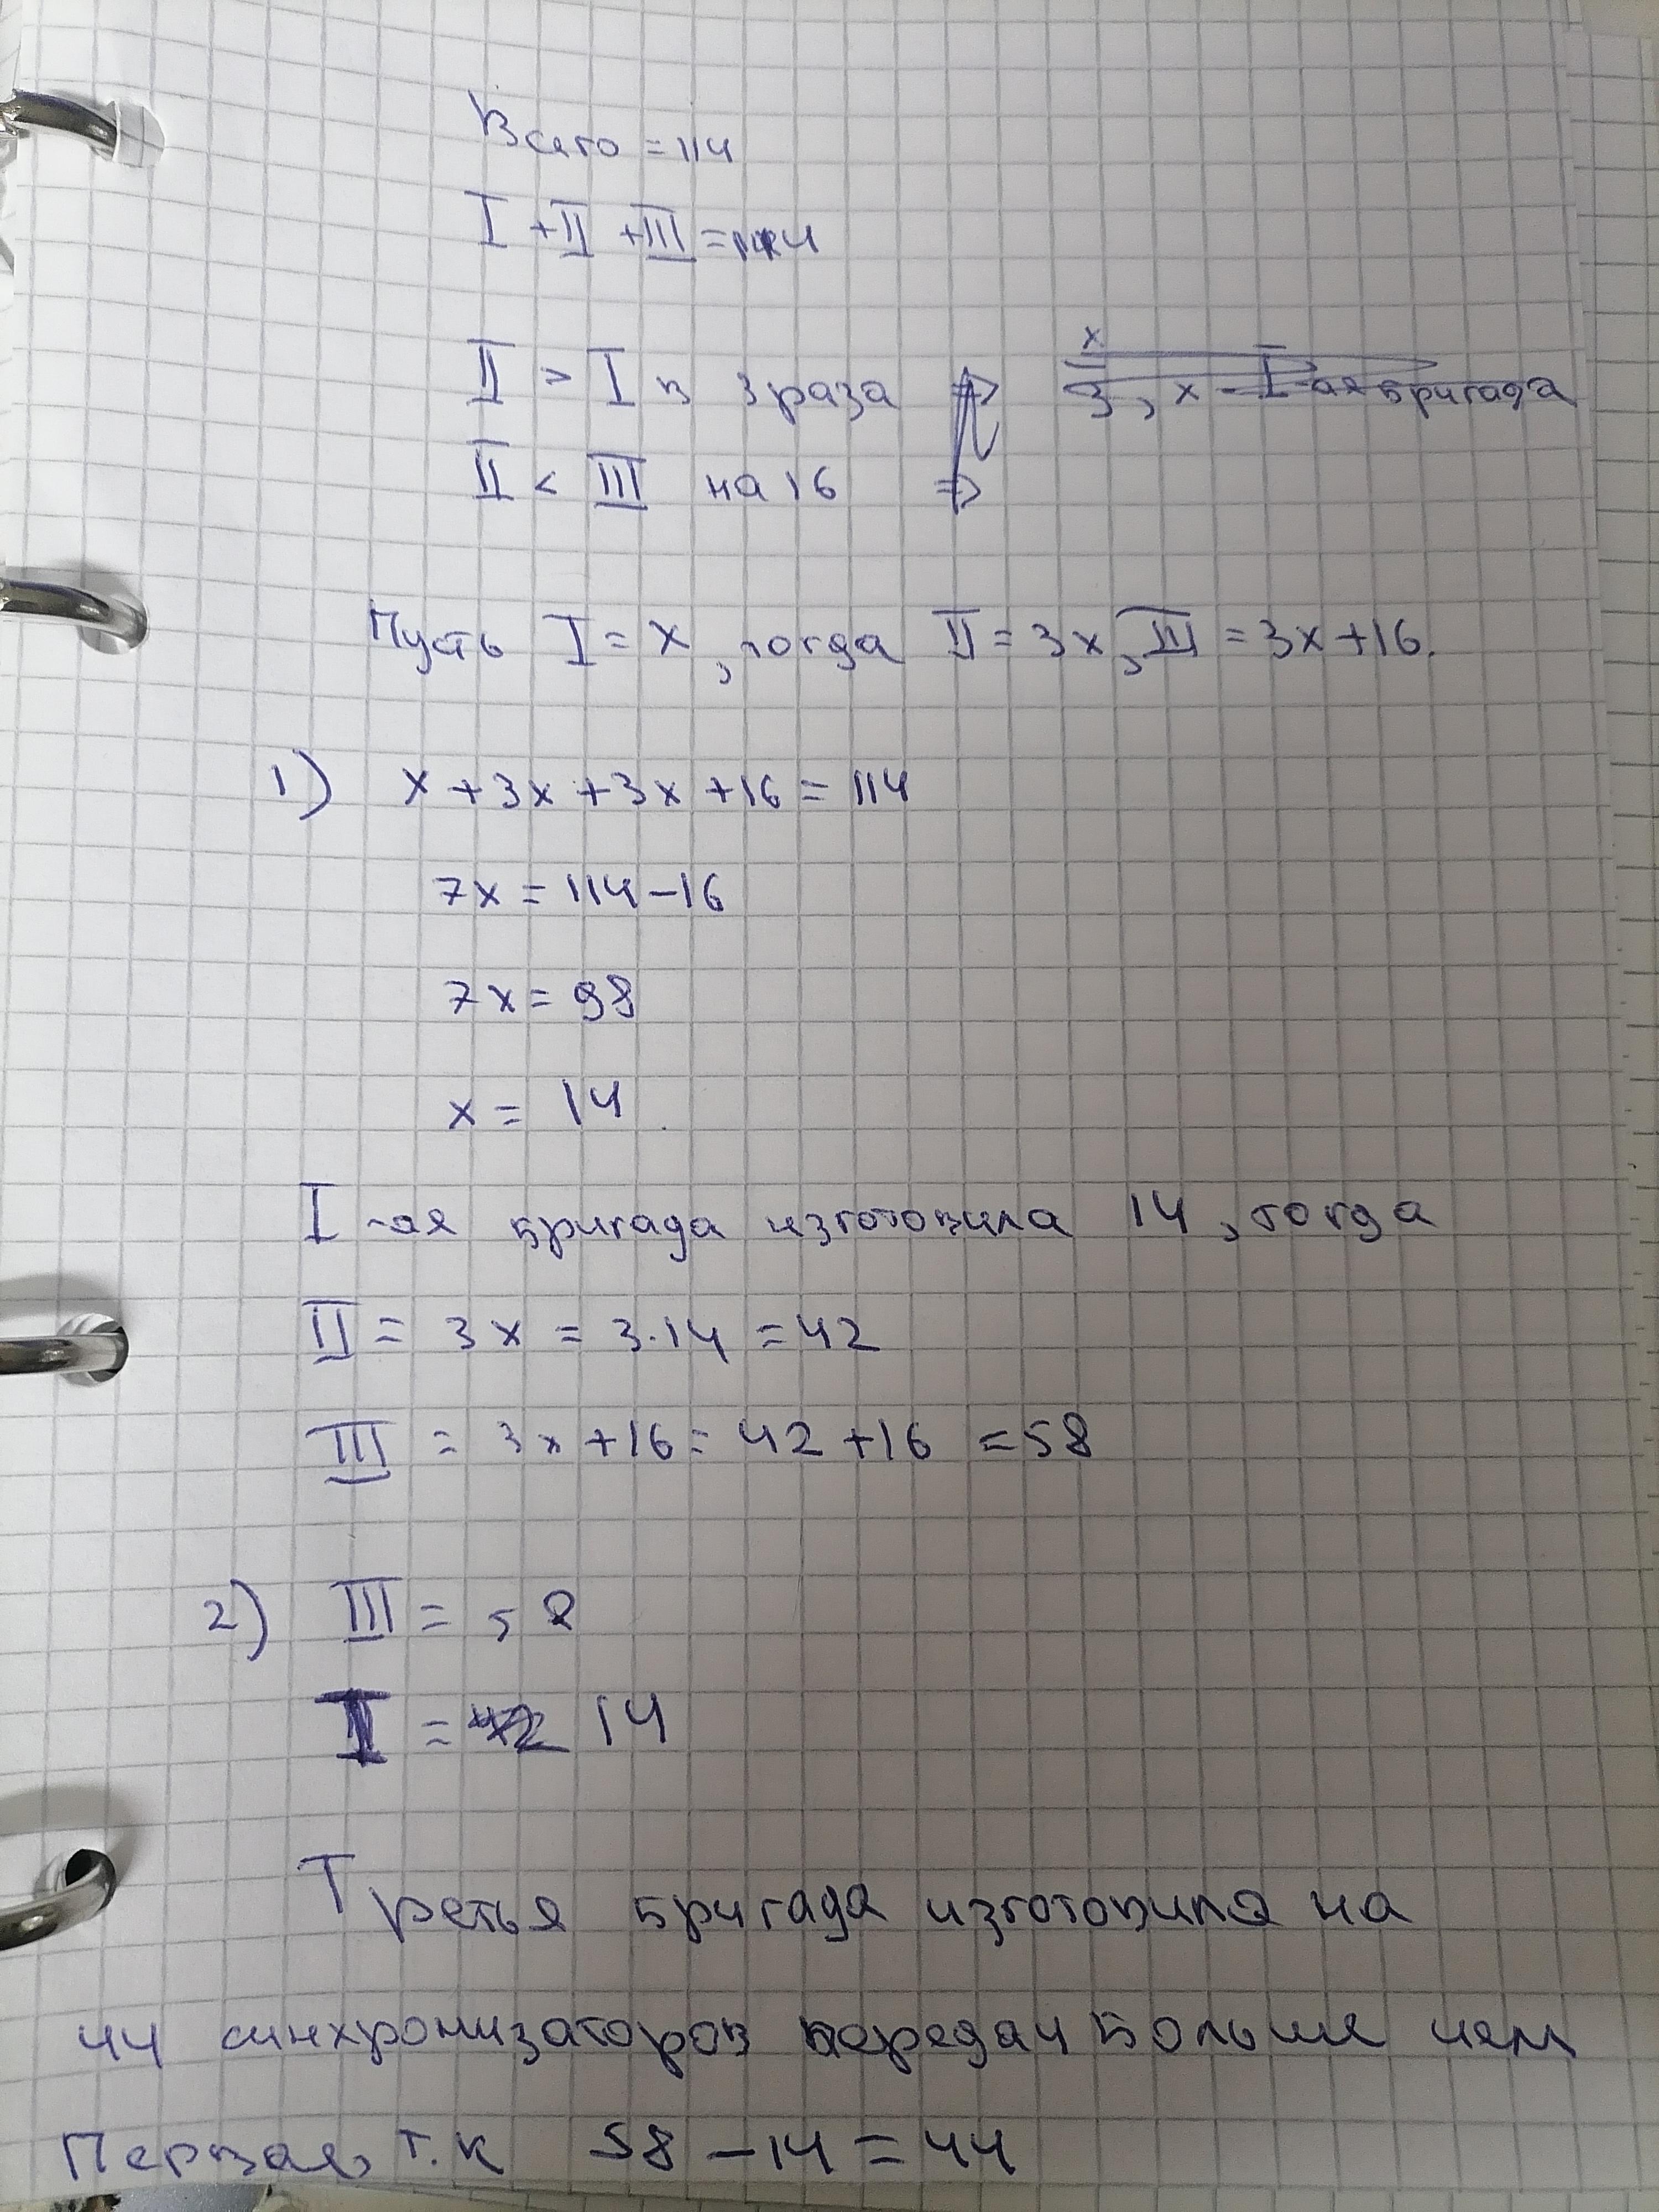 Всего = 114
I + II + III = 114
II > I в 3 раза => x/3, x - I-ая бригада
II < III на 16 =>
Пусть I = x, тогда II = 3x, III = 3x + 16.
1) x + 3x + 3x + 16 = 114
7x = 114 - 16
7x = 98
x = 14
I-ая бригада изготовила 14, тогда
II = 3x = 3·14 = 42
III = 3x + 16 = 42 + 16 = 58
2) III = 58
I = 42 14
Третья бригада изготовила на
44 синхронизаторов передач больше чем
Первая, т.к 58 - 14 = 44